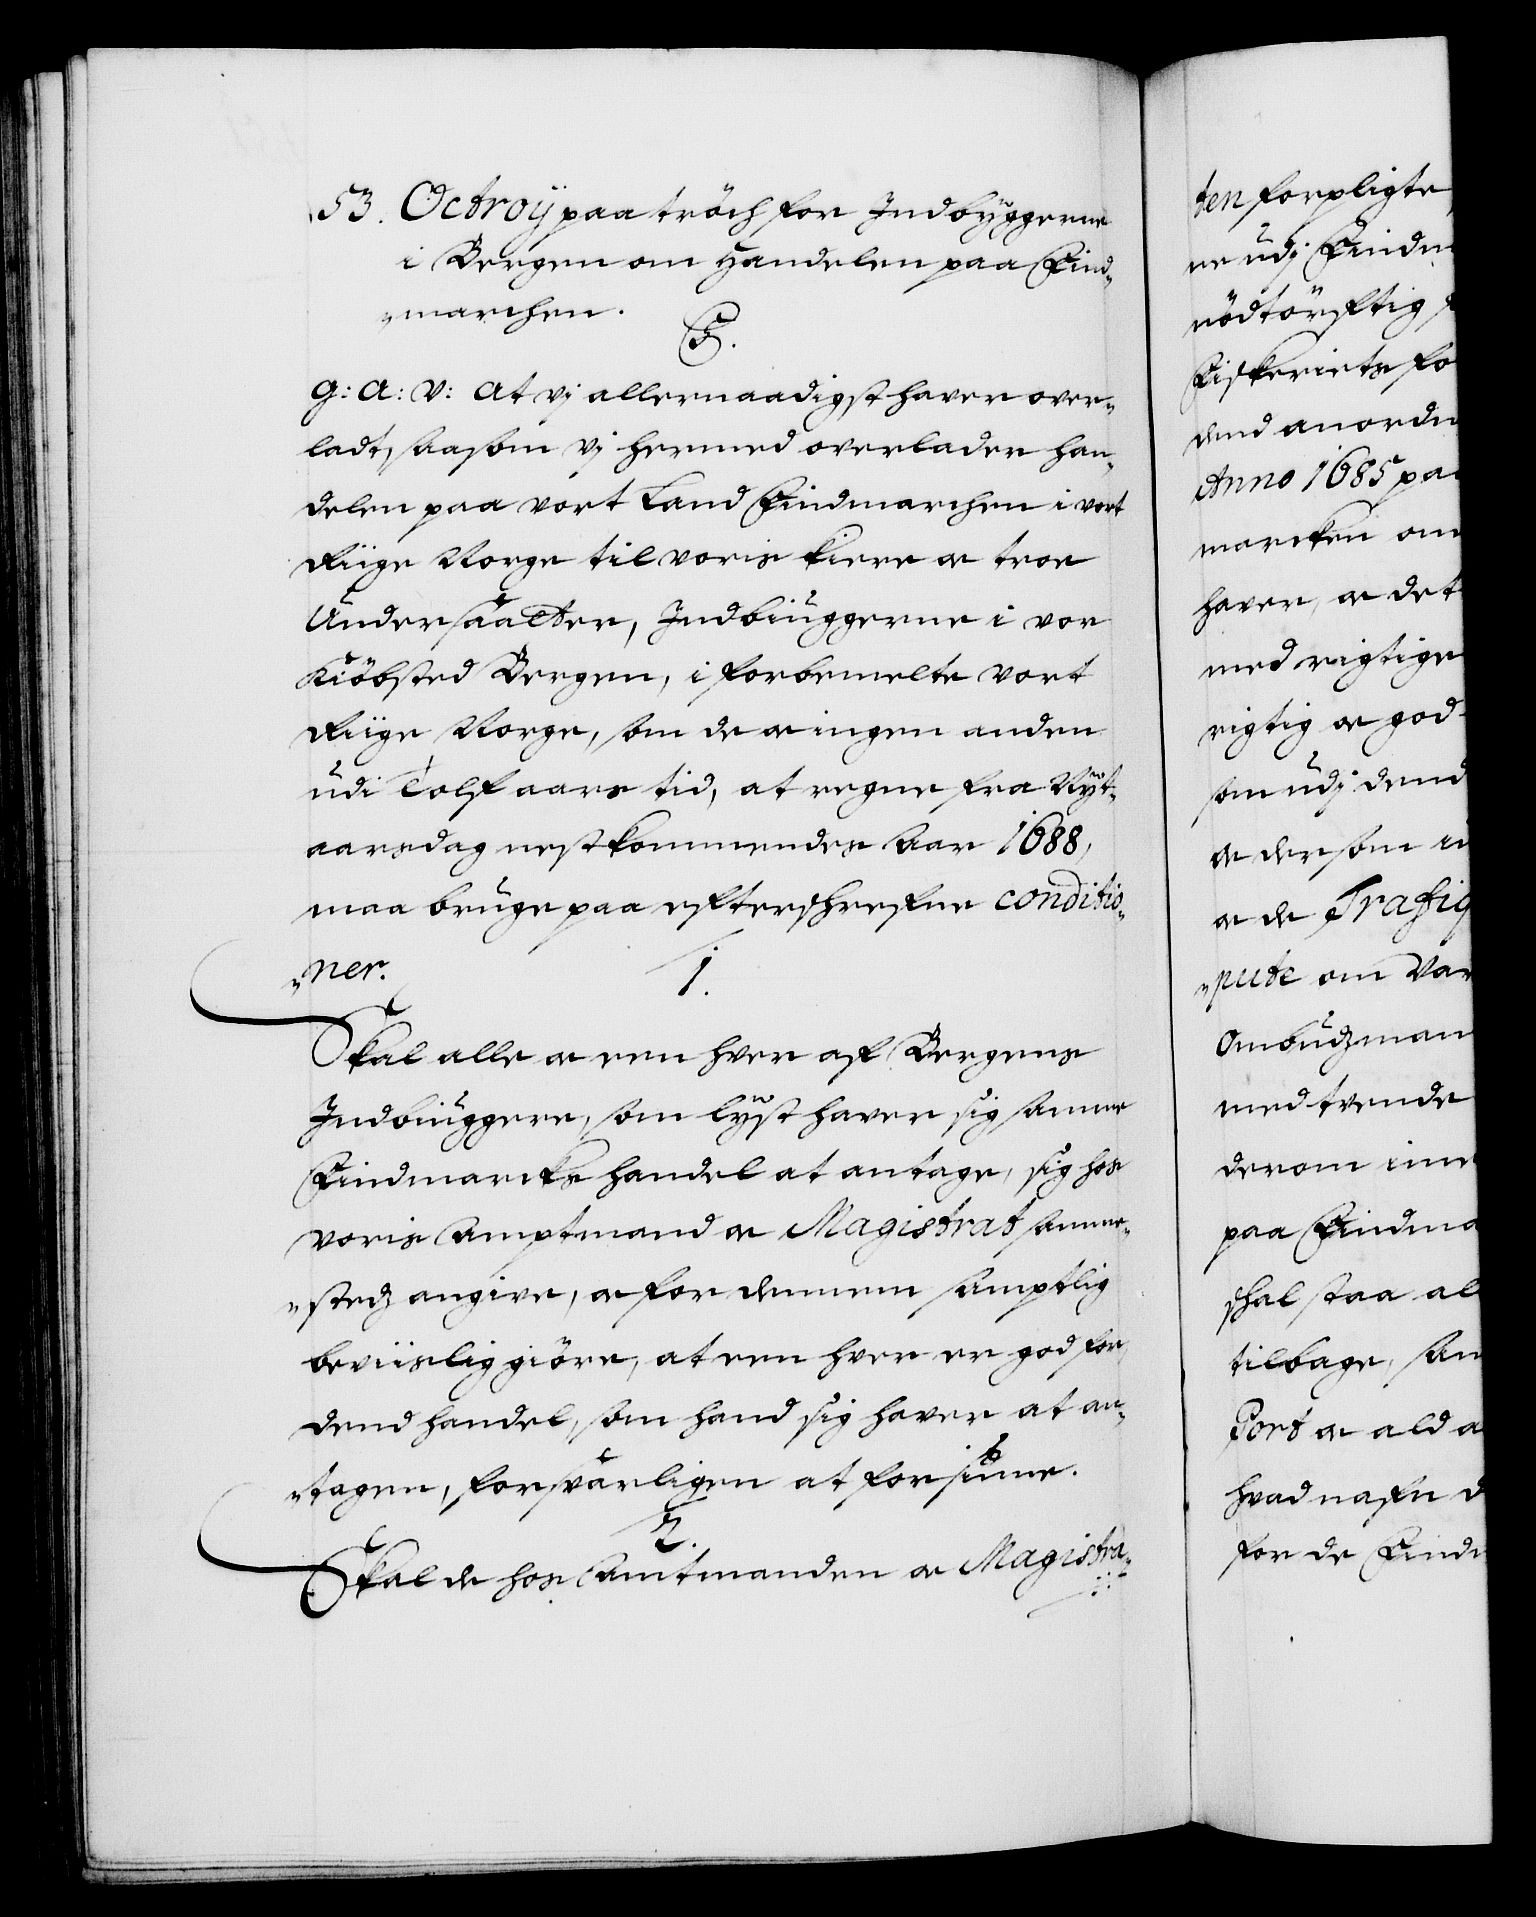 53. Octroÿ paa tröch for Indbÿggerne
i Bergen om Handelen paa Find„
„marchen.
C5.
G: A: V: At vj allernaadigst haver over„
ladt, saasom vj hermed overlader han„
delen paa vort Land Findmarchen i vort
Riige Norge til voris kiere oc troe
Undersaatter, Indbiuggerne i vor
Kiöbsted Bergen, i forbemelte vort
Riige Norge, som de oc ingen anden
udi Tolf aars tid, at regne fra Nÿt„
aarsdag nestkommendes Aar 1688,
maa bruge paa efterschrefne conditio„
„ner.
1.
Skal alle oc een hver af Bergens
Indbiuggere, som lÿst haver sig samme
Findmarcks handel at antage, sig hos
voris Amptmand oc Magistrat samme„
„stedz angive, oc for dennem samptlig
beviislig giöre, at een hver er god for
dend handel, som hand sig haver at an„
„tagen, forsvarligen at forsiune.
2.
Skal de hos Amtmanden oc Magistra„
ten forpligte
re udj Findm
nödtörftig
Fiskeriets fo
dend anordn
Anno 1685 paa
marcken om
haver, oc det
med rigtige
rigtig oc god
som udj dend
oc dersom in
oc de Trafiq
„pute om Var
Ombudzman
med tvende
derom ime
paa Findma
schal staa al
tilbage, sam
Port oc ald a
hvad nafn d
for de Findm